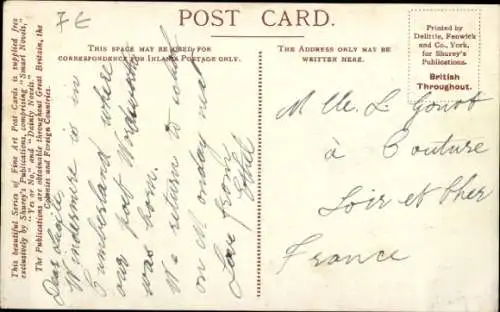 7 E
POST CARD.
THIS SPACE MAY BE USED FOR
CORRESPONDENCE FOR INLAND POSTAGE ONLY.
THE ADDRESS ONLY MAY BE
WRITTEN HERE.
Printed by
Delittle, Fenwick
and Co., York,
for Shurey's
Publications.
British
Throughout.
This beautiful Series of Fine Art Post Cards is supplied free
exclusively by Shurey's Publications, comprising "Smart Novels,"
"Yes or No," and "Dainty Novels."
The Publications are obtainable throughout Great Britain, the
Colonies and Foreign Countries.
Dear Lucile
Windermere is in
Cumberland where
our poet Wordsworth
was born.
We return to
on Monday next
Love from
Ethel
Mlle. L.
à Couture
Loir et Cher
France